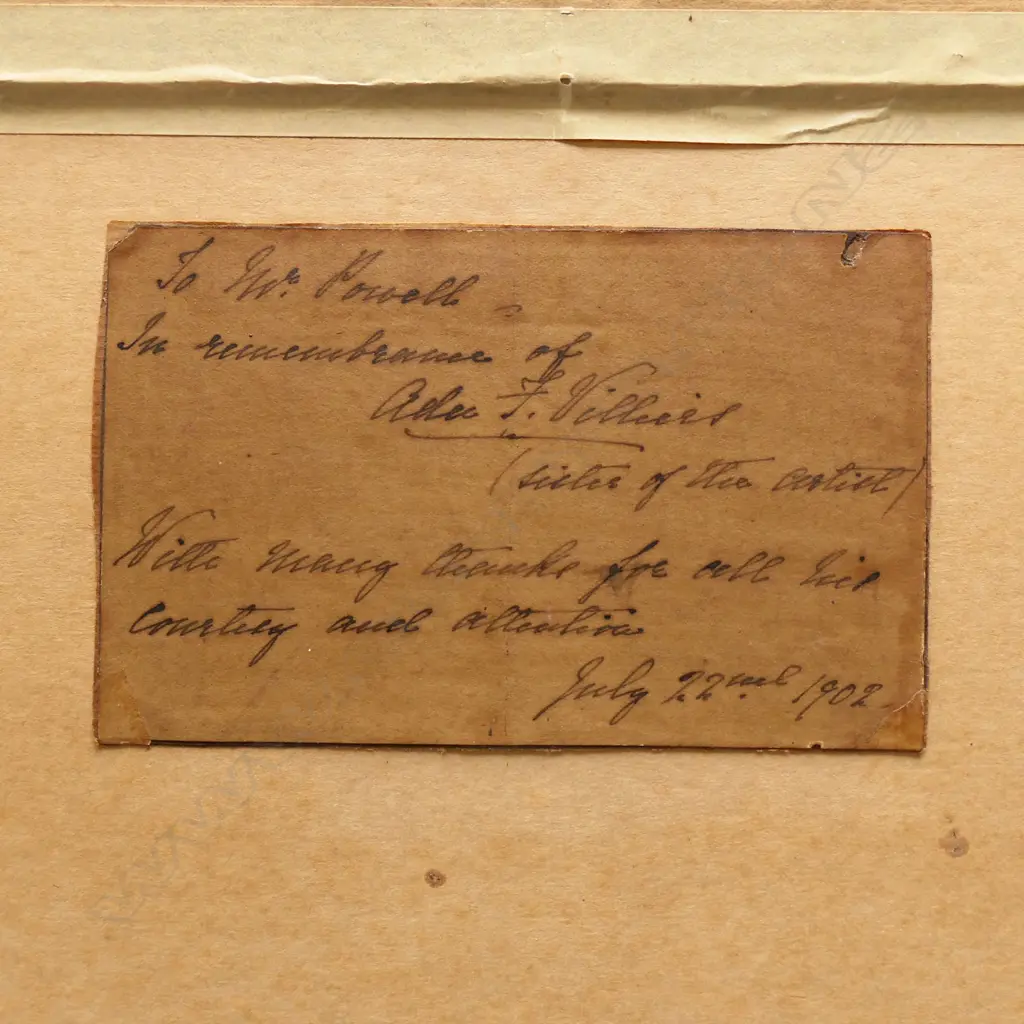 To Mr. Powell –
In remembrance of
Ada F. Villiers
(sister of the artist)
With many thanks for all his
courtesy and attention
July 22nd. 1902.